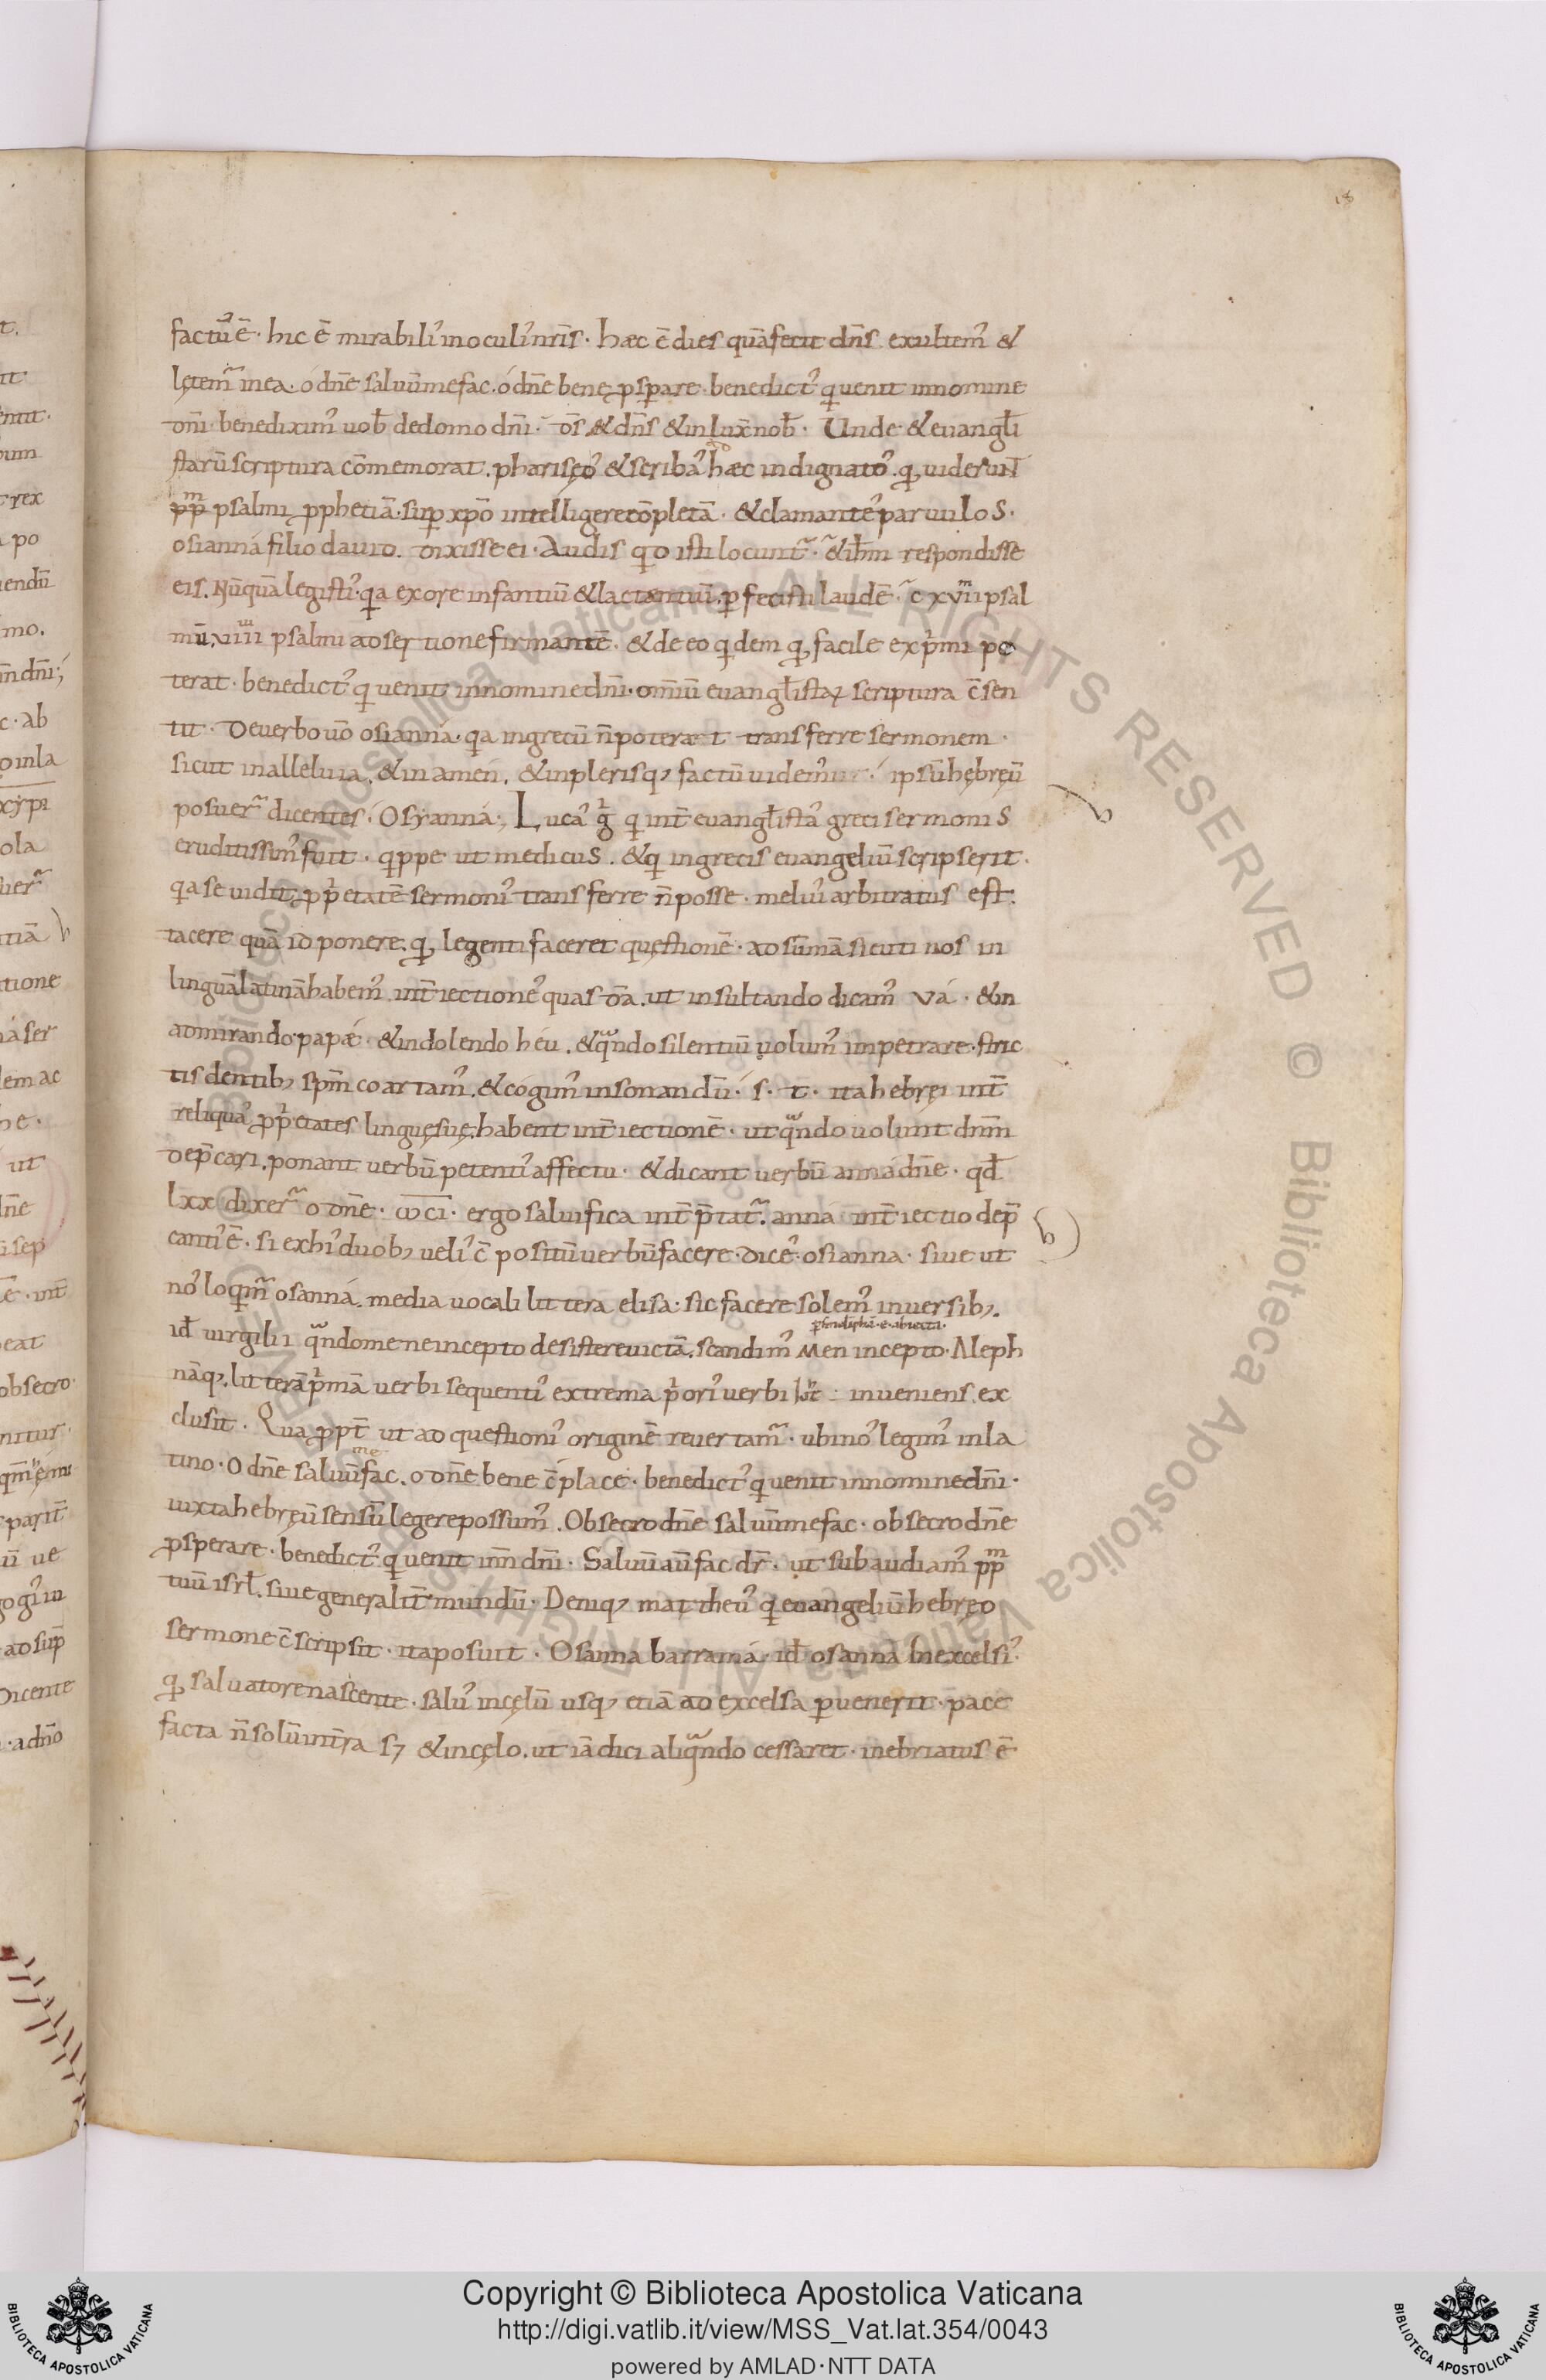 18
factū ē · hic ē mirabili' inoculi' nr̄is · hæc ē dies quā fecit dn̄s exultem' &
lętem' inea · ó dn̄e saluū mefac · ó dn̄e bene ꝓsꝑare · benedict' qui uenit innomine
dn̄i · benedixim' uob̄ dedomo dn̄i · d̄s & dn̄s & inlux̄ nob̄ · Unde & euangl̄i
starū scriptura cōmemorat . phariseo' & scriba' hæc indignato' . qđ uiderunt
pp̄m psalmi ꝓphetiā · suꝑ xpō intelligere cōpletā · & clamante' paruulos ·
osianná filio dauid . dixisse ei · Audis qd isti locunt̃ · & ih̄m respondisse
eis . Nūquā legisti' · q̇a exore infantiū & lactentiū . ꝑfecisti laudē · c̄ xvii psal
mū . viiii psalmi adsertione firmantē . & de eo q̇dem qđ facile exp̍mi po
terat · benedict' q̇ uenit innomine dn̄i · om̄iū euangl̄istaꝝ scriptura c̄sen
tit · Deuerbo ūo osianná · q̇a ingrecū n̄ poterat transferre sermonem ·
sicut inalleluia . & inamén . & inplerisq; factū uidem' ipsū hębręū
posuer̄ dicentes · Osyanná ; Luca' g̍ q̇ int̄ euangl̄ista' greci sermonis
eruditissim' fuit · q̇ppe ut medicus . & q̇ ingrecis euangeliū scripserit ·
q̇a se uidit ꝓp̍etatē sermoni' transferre n̄posse · meliu' arbitratus est .
tacere quā id ponere . qđ legenti faceret quęstionē · ad sūmā sicuti nos in
linguā latinā habem' int̄iectione' quasdā . ut insultando dicam' vá · & in
admirando · papæ · & indolendo héu . & qᷓndo silentiū uolum' impetrare · stric
tis dentib; sp̄m coartam' . & cógim' insonandū · s · t · ita hebręi int̄
reliqua' ꝓp̍etates linguęsuę . habent int̄iectionē · ut qᷓndo uolunt dn̄m
dep̄cari . ponant uerbū petenti' affectu · & dicant uerbū anná dn̄e · qd̄
lxx dixer̄ o dn̄e · ωci · ergo saluifica int̄p̄tat̃ . anná int̄iectio dep̄
canti' ē · si exhi' duob; ueli' c̄positū uerbū facere · dice' · osianna · siue ut
no' loq̇m̄ osanná . media uocali littera elisa · sic facere solem' inuersib; .
id̄ virgilii qᷓndo mene incepto desistere uictā . scandim' Men incepto · Aleph
nāq; litterā p̍mā uerbi sequenti' extrema p̍ori' uerbi inueniens ex
clusit · Qua ꝓpt̄ ut ad questioni' originē reuertam̃ · ubi no' legim' inla
tino · O dn̄e saluū me fac . o dn̄e bene c̄place · benedict' q̇ uenit innomine dn̄i ·
iuxta hebręū sensū legere possum' . Obsecro dn̄e saluū mefac · obsecro dn̄e
ꝓsperare · benedict' q̇ uenit inn̄ dn̄i · Saluū aū fac dr̄ · ut subaudiam' pp̄m
tuū isrl̄ . siue generalit̄ mundū · Deniq; mattheu' q̇ euangeliū hebręo
sermone c̄scripsit · ita posuit · Osanna barramá · id̄ osanna inexcelsi' ·
qđ saluatore nascente · salu' incęlū usq; etiā ad excelsa ꝑuenerit · pace
facta n̄ solū int̄ra s; & incęlo . ut iā dici aliqᷓndo cessaret · inebriatus ē
Copyright © Biblioteca Apostolica Vaticana
http://digi.vatlib.it/view/MSS_Vat.lat.354/0043
powered by AMLAD·NTT DATA
BIBLIOTECA APOSTOLICA VATICANA
BIBLIOTECA APOSTOLICA VATICANA